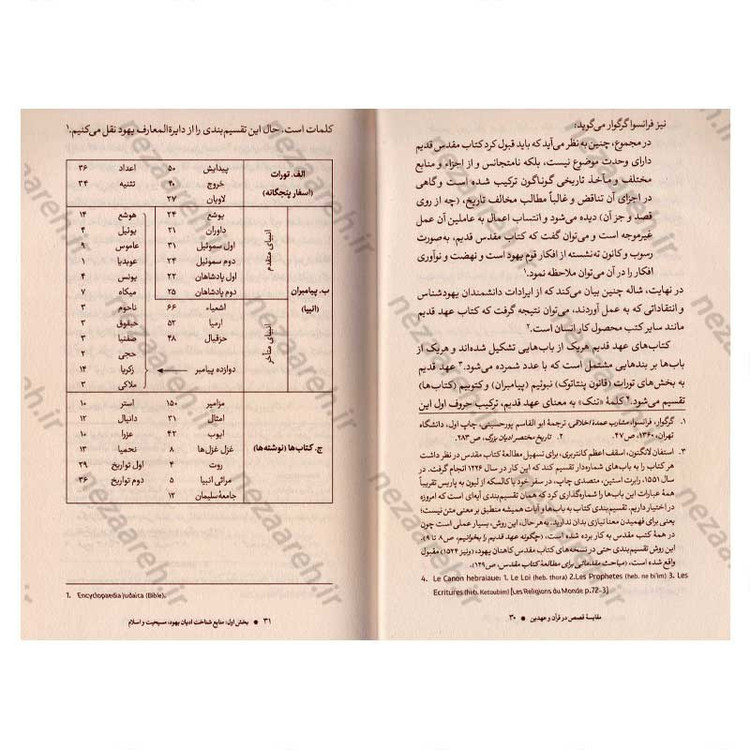 نیز فرانسوا گرگوار می‌گوید:
در مجموع، چنین به نظر می‌آید که باید قبول کرد کتاب مقدس قدیم
دارای وحدت موضوع نیست، بلکه نامتجانس و از اجزاء و منابع
مختلف و مآخذ تاریخی گوناگون ترکیب شده است و گاهی
در اجزای آن تناقض و غالباً مطالب مخالف تاریخ، (چه از روی
قصد و جز آن) دیده می‌شود و انتساب اعمال به عاملین آن عمل
غیرموجه است و می‌توان گفت که کتاب مقدس قدیم، به‌صورت
رسوب و کانون ته‌نشسته از افکار قوم یهود است و نهضت و نوآوری
افکار را در آن می‌توان ملاحظه نمود.۱
در نهایت، شاله چنین بیان می‌کند که از ایرادات دانشمندان یهودشناس
و انتقاداتی که به عمل آوردند، می‌توان نتیجه گرفت که کتاب عهد قدیم
مانند سایر کتب محصول کار انسان است.۲
کتاب‌های عهد قدیم هریک از باب‌هایی تشکیل شده‌اند و هریک از
باب‌ها بر بندهایی مشتمل است که با عدد شمرده می‌شود.۳ عهد قدیم
به بخش‌های تورات (قانون پنتاتوک) نبوئیم (پیامبران) و کتوبیم (کتاب‌ها)
تقسیم می‌شود.۴ کلمهٔ «تنک» به معنای عهد قدیم، ترکیب حروف اول این
۱. گرگوار، فرانسوا، مشارب عمدهٔ اخلاقی، ترجمهٔ ابو القاسم پورحسینی، چاپ اول، دانشگاه
تهران، ۱۳۶۰، ص۴۷. ۲. تاریخ مختصر ادیان بزرگ، ص۲۸۳.
۳. استفان لانگتون، اسقف اعظم کانتربری، برای تسهیل مطالعهٔ کتاب مقدس در نظر داشت
هر کتاب را به باب‌های شماره‌دار تقسیم کند که این کار در سال ۱۲۲۶ انجام گرفت. در
سال ۱۵۵۱، رابرت استین، متصدی چاپ، در سفر خود با کالسکه از لیون به پاریس تقریباً
همهٔ عبارات این باب‌ها را شماره‌گذاری کرد که همان تقسیم‌بندی آیه‌ای است که امروزه
در اختیار داریم. تقسیم‌بندی کتاب به باب‌ها و آیات همیشه منطبق بر معنی متن نیست؛
یعنی برای فهمیدن معنا نیازی بدان ندارید. به‌هر حال، این روش، بسیار عملی است چون
در همهٔ کتب مقدس به کار برده شده است، (چگونه عهد قدیم را بخوانیم، ص۸ تا ۹).
این روش تقسیم‌بندی حتی در نسخه‌های کتاب مقدس کاهنان یهود، (ونیز ۱۵۲۴) مقبول
واقع شده است، (مباحث مقدماتی برای مطالعهٔ کتاب مقدس، ص۱۲۹).
4. Le Canon hebraiaue: 1. Le Loi (heb. thora) 2.Les Prophetes (heb. ne bi'im) 3. Les
Ecritures (héb. Ketoubim) [Les Religions du Monde p.72-3]
۳۰ ● مقایسهٔ قصص در قرآن و عهدین
کلمات است. حال این تقسیم‌بندی را از دایرةالمعارف یهود نقل می‌کنیم.۱
الف. تورات (اسفار پنجگانه)
پیدایش ۵۰ اعداد ۳۶
خروج ۴۰ تثنیه ۳۴
لاویان ۲۷
ب. پیامبران (انبیا)
انبیای متقدم
یوشع ۲۴ هوشع ۱۴
داوران ۲۱ یوئیل ۴
اول سموئیل ۳۱ عاموس ۹
دوم سموئیل ۲۴ عوبدیا ۱
اول پادشاهان ۲۲ یونس ۴
دوم پادشاهان ۲۵ میکاه ۷
انبیای متأخر
اشعیاء ۶۶ ناحوم ۳
ارمیا ۵۲ حبقوق ۳
حزقیال ۴۸ صفنیا ۳
حجی ۲
دوازده پیامبر زکریا ۱۴
ملاکی ۳
ج. کتاب‌ها (نوشته‌ها)
مزامیر ۱۵۰ استر ۱۰
امثال ۳۱ دانیال ۱۲
ایوب ۴۲ عزرا ۱۰
غزل غزل‌ها ۸ نحمیا ۱۳
روت ۴ اول تواریخ ۲۹
مراثی انبیا ۵ دوم تواریخ ۳۶
جامعهٔ سلیمان ۱۲
1. Encyclopaedia Judaica (Bible).
بخش اول: منابع شناخت ادیان یهود، مسیحیت و اسلام ● ۳۱
nezaareh.ir